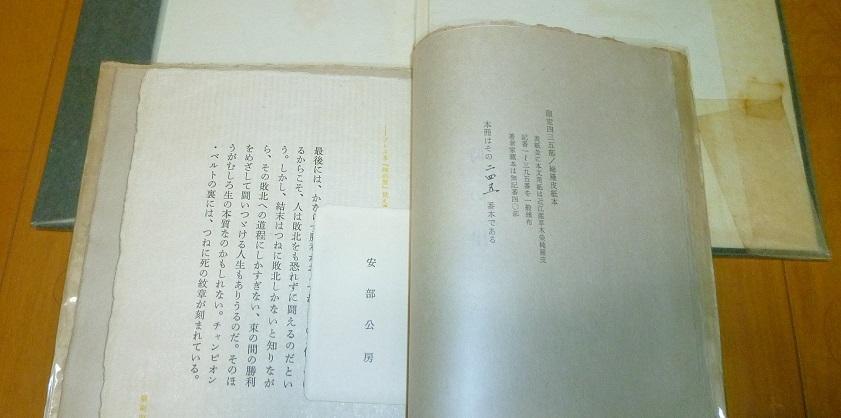 限定四三五部／総雁皮紙本
表紙並に本文用紙は近江雁草木染雁皮
記番一―三九五番を一般頒布
著者家蔵本は無記番四〇部
本冊はその二四五番本である
最後には、かな
るからこそ、人は敗北をも恐れずに闘えるのだとい
う。しかし、結末はつねに敗北しかないと知りなが
ら、その敗北への道程にしかすぎない、束の間の勝利
をめざして闘いつゞける人生もありうるのだ。そのほ
うがむしろ生の本質なのかもしれない。チャンピオン
・ベルトの裏には、つねに死の紋章が刻まれている。
安部公房